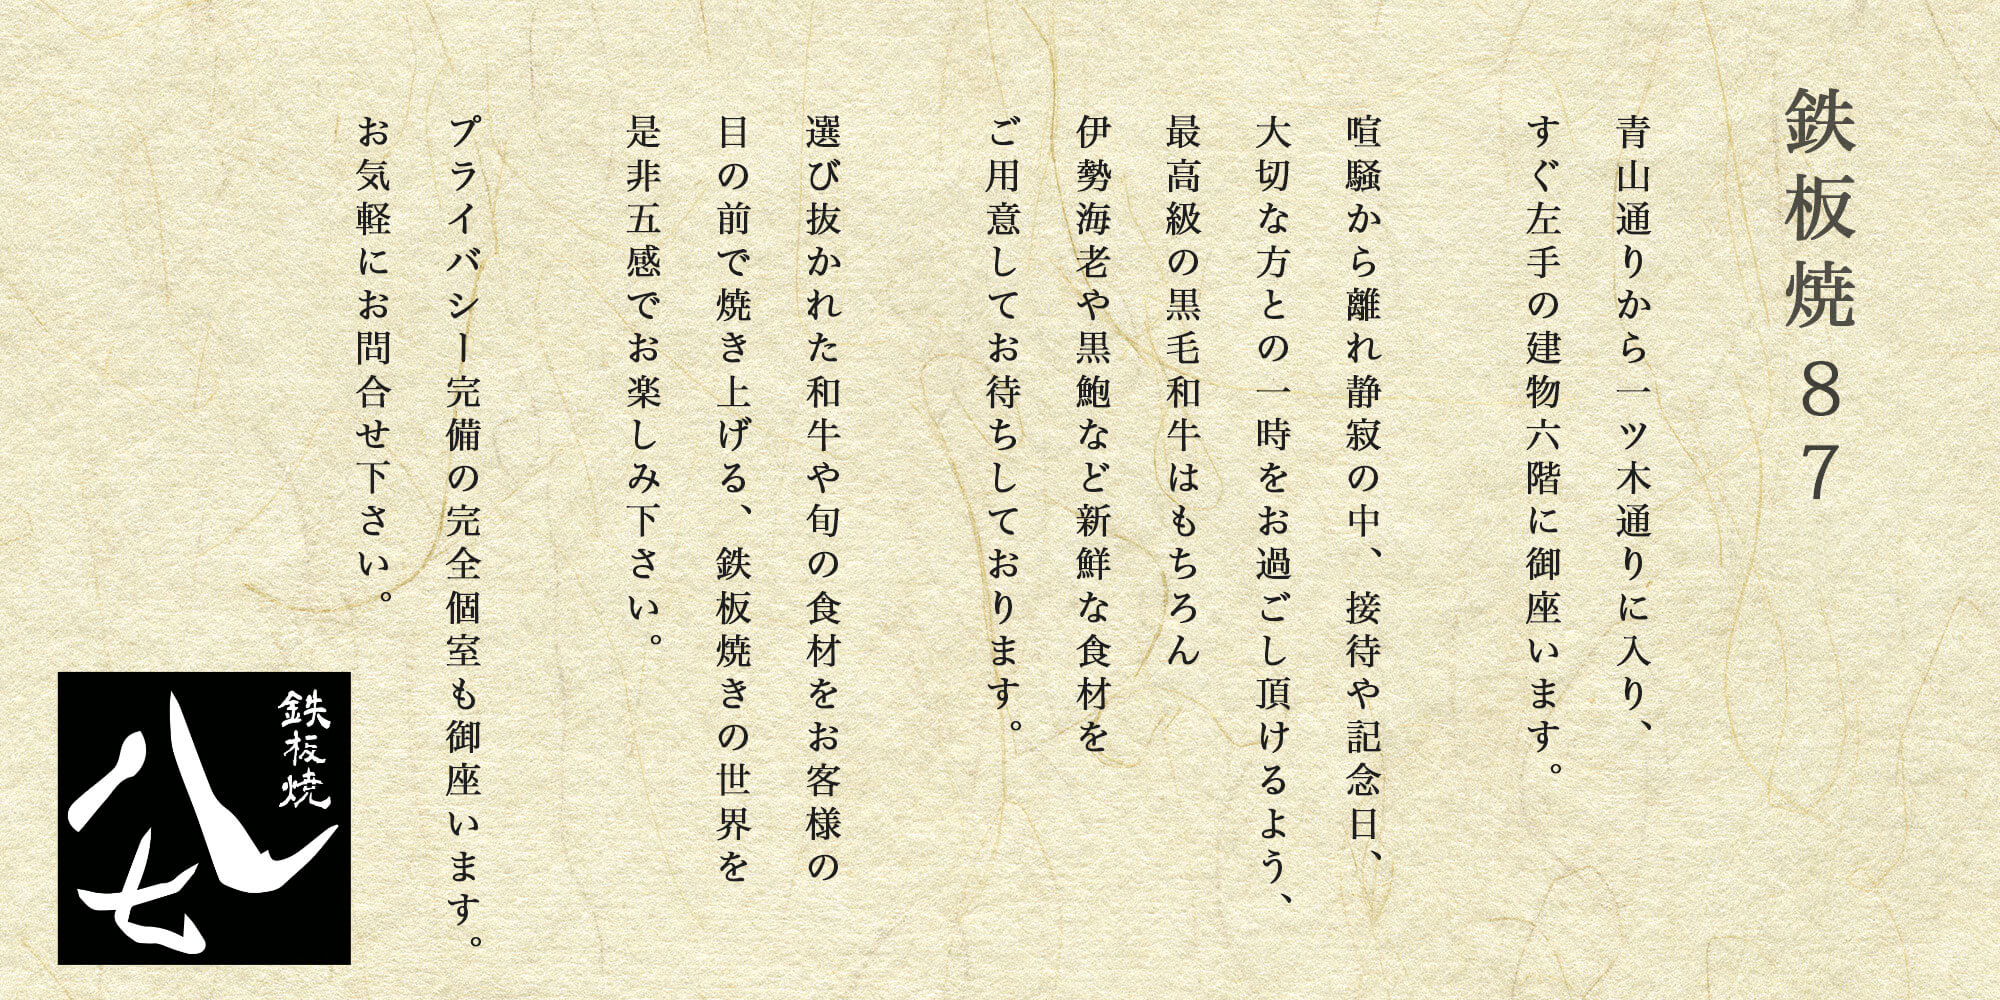 鉄板焼87
青山通りから一ツ木通りに入り、
すぐ左手の建物六階に御座います。
喧騒から離れ静寂の中、接待や記念日、
大切な方との一時をお過ごし頂けるよう、
最高級の黒毛和牛はもちろん
伊勢海老や黒鮑など新鮮な食材を
ご用意してお待ちしております。
選び抜かれた和牛や旬の食材をお客様の
目の前で焼き上げる、鉄板焼きの世界を
是非五感でお楽しみ下さい。
プライバシー完備の完全個室も御座います。
お気軽にお問合せ下さい。
鉄板焼
八七